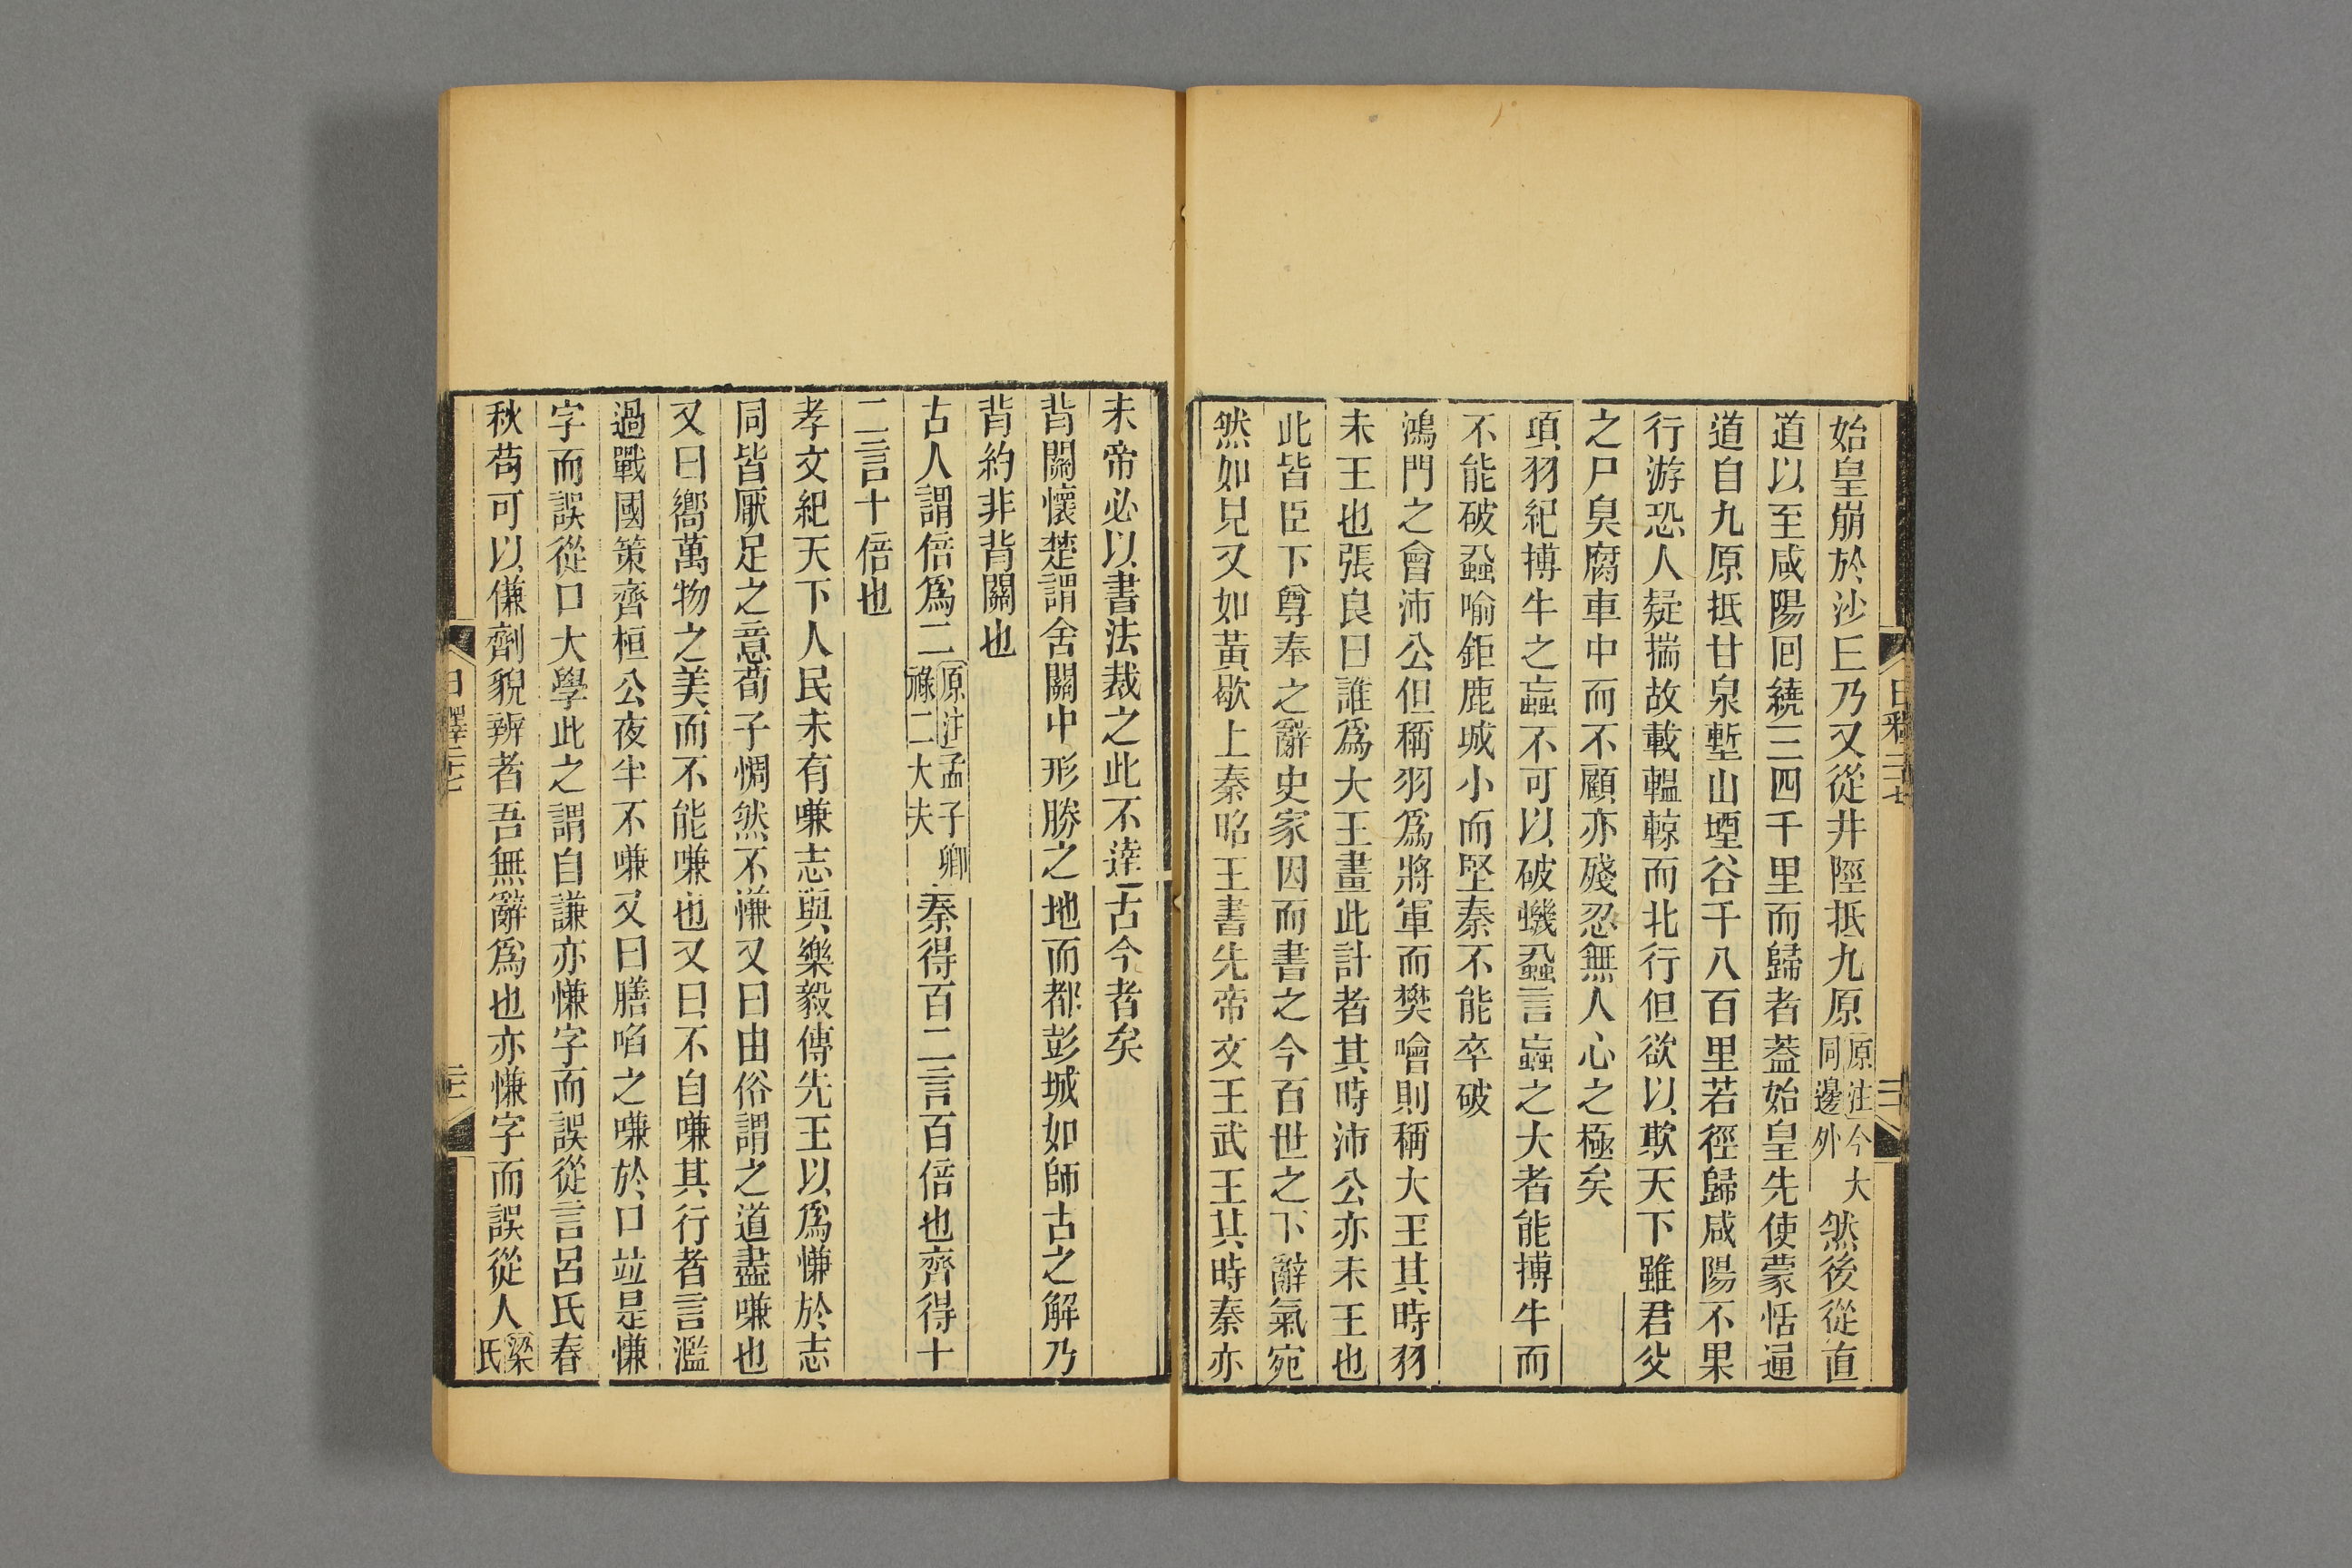 始皇崩於沙㠪乃又從井陘抵九原原注今大同邊外然後從直
道以至咸陽回繞三四千里而歸者蓋始皇先使蒙恬通
道自九原抵甘泉塹山堙谷千八百里若徑歸咸陽不果
行游恐人疑揣故載轀輬而北行但欲以欺天下雖君父
之尸臭腐車中而不顧亦殘忍無人心之極矣
項羽紀搏牛之蝱不可以破蟣蝨言蝱之大者能搏牛而
不能破蝨喻鉅鹿城小而堅秦不能卒破
鴻門之會沛公但稱羽為將軍而樊噲則稱大王其時羽
未王也張良曰誰為大王畫此計者其時沛公亦未王也
此皆臣下尊奉之辭史家因而書之今百世之下辭氣宛
然如見又如黃歇上秦昭王書先帝文王武王其時秦亦
未帝必以書法裁之此不達古今者矣
背關懷楚謂舍關中形勝之地而都彭城如師古之解乃
背約非背關也
古人謂倍為二原注孟子卿祿二大夫秦得百二言百倍也齊得十
二言十倍也
孝文紀天下人民未有嗛志與樂毅傳先王以為慊於志
同皆厭足之意荀子惆然不慊又曰由俗謂之道盡嗛也
又曰嚮萬物之美而不能嗛也又曰不自嗛其行者言濫
過戰國策齊桓公夜半不嗛又曰膳啗之嗛於口竝是慊
字而誤從口大學此之謂自謙亦慊字而誤從言呂氏春
秋苟可以傔劑貌辨者吾無辭為也亦慊字而誤從人梁氏
日釋二十七
三